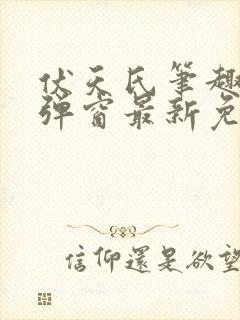 伏天氏筆趣
彈窗最新免
信仰還是欲望